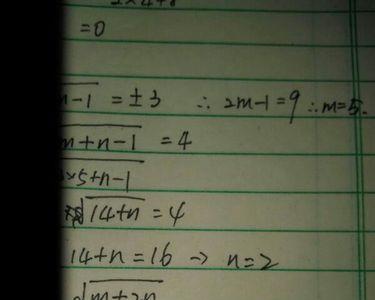 =0
-1 = ±3 ∴ 2m-1=9 ∴ m=5.
m+n-1 = 4
×5+n-1
√14+n = 4
14+n=16 → n=2
√m+2n